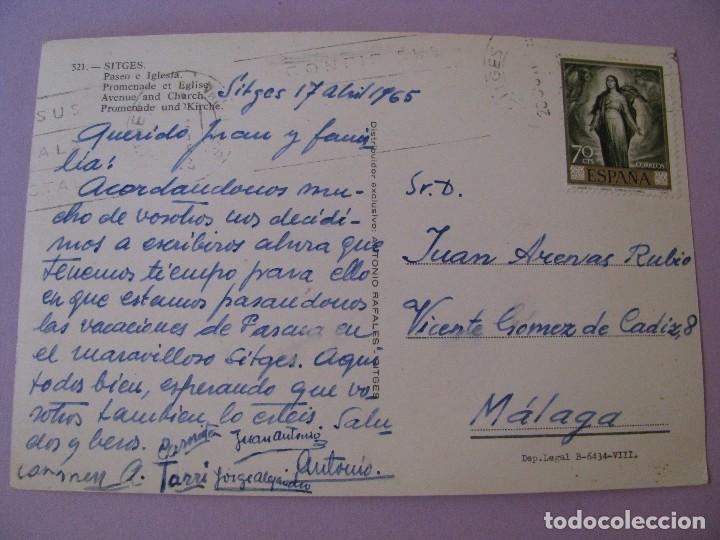 521. — SITGES.
Paseo e Iglesia.
Promenade et Eglise.
Avenue and Church.
Promenade und Kirche.
Sitges 17 abril 1965
Querido Juan y fami-
lia:
Acordandonos mu-
cho de vosotros nos decidi-
mos a escribiros ahora que
tenemos tiempo para ello
en que estamos pasandonos
las vacaciones de Pascua en
el maravilloso Sitges. Aqui
todos bien, esperando que vo-
sotros tambien lo esteis. Salu-
dos y besos. Juan Antonio
Carmen A. Jorge Alejandro Antonio.
Distribuidor exclusivo: ANTONIO RAFALES - SITGES
70 CTS
CORREOS
ESPAÑA
Sr. D.
Juan Arenas Rubio
Vicente Gómez de Cadiz, 8
Málaga
Dep. Legal B-6434-VIII.
todocoleccion
todocoleccion.net